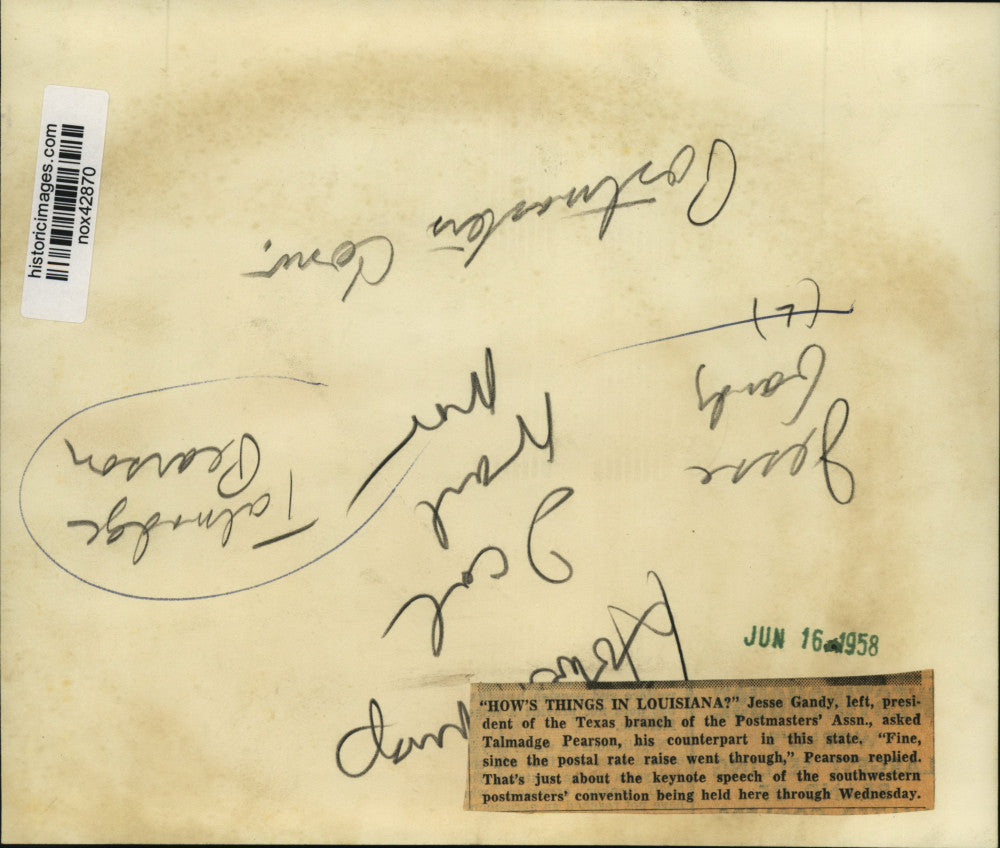 historicimages.com
nox42870
Postmasters Conv.
(L)
Jesse
Gandy
Talmadge
Pearson
2 col
JUN 16 1958
"HOW'S THINGS IN LOUISIANA?" Jesse Gandy, left, presi-
dent of the Texas branch of the Postmasters' Assn., asked
Talmadge Pearson, his counterpart in this state. "Fine,
since the postal rate raise went through," Pearson replied.
That's just about the keynote speech of the southwestern
postmasters' convention being held here through Wednesday.